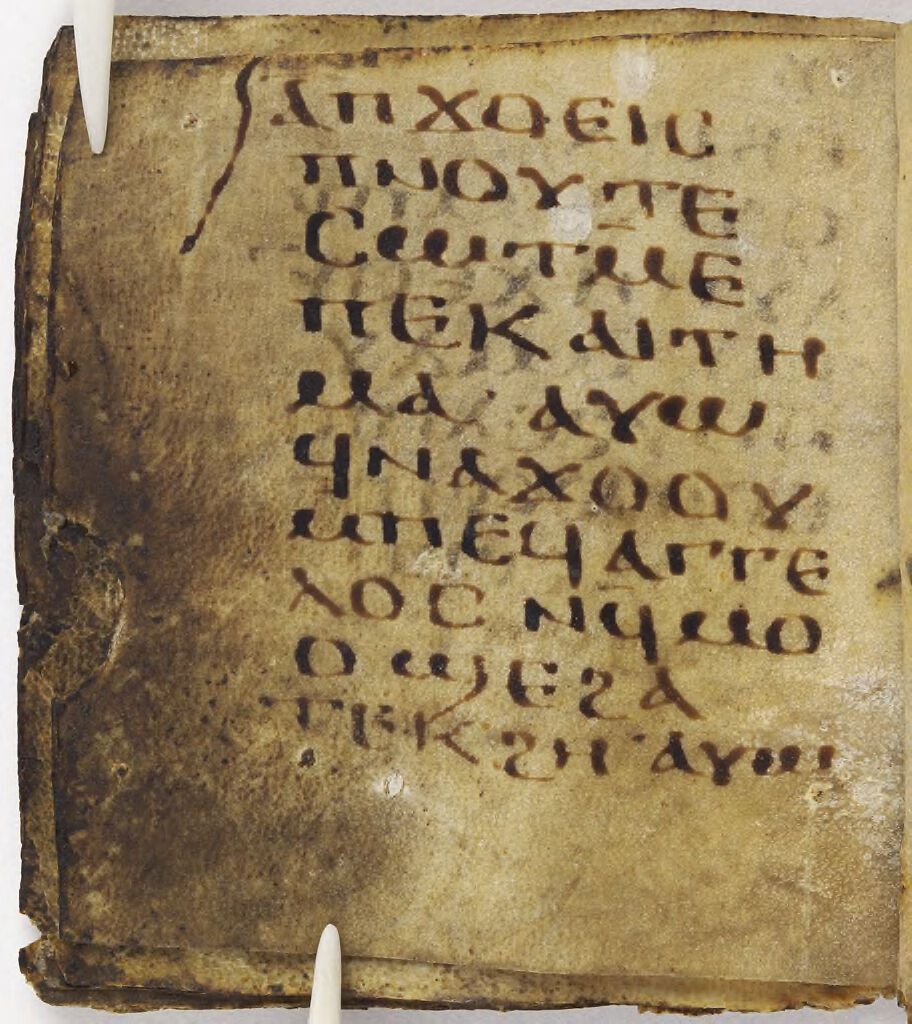 ⲁⲡϫⲟⲉⲓⲥ
ⲡⲛⲟⲩⲧⲉ
ⲥⲱⲧⲙⲉ
ⲡⲉⲕⲁⲓⲧⲏ
ⲙⲁ· ⲁⲩⲱ
ϥⲛⲁϫⲟⲟⲩ
ⲙⲡⲉϥⲁⲅⲅⲉ
ⲗⲟⲥ ⲛϥⲙⲟ
ⲟϣⲉϩⲁ
ⲧⲉⲕϩⲏ· ⲁⲩⲱ